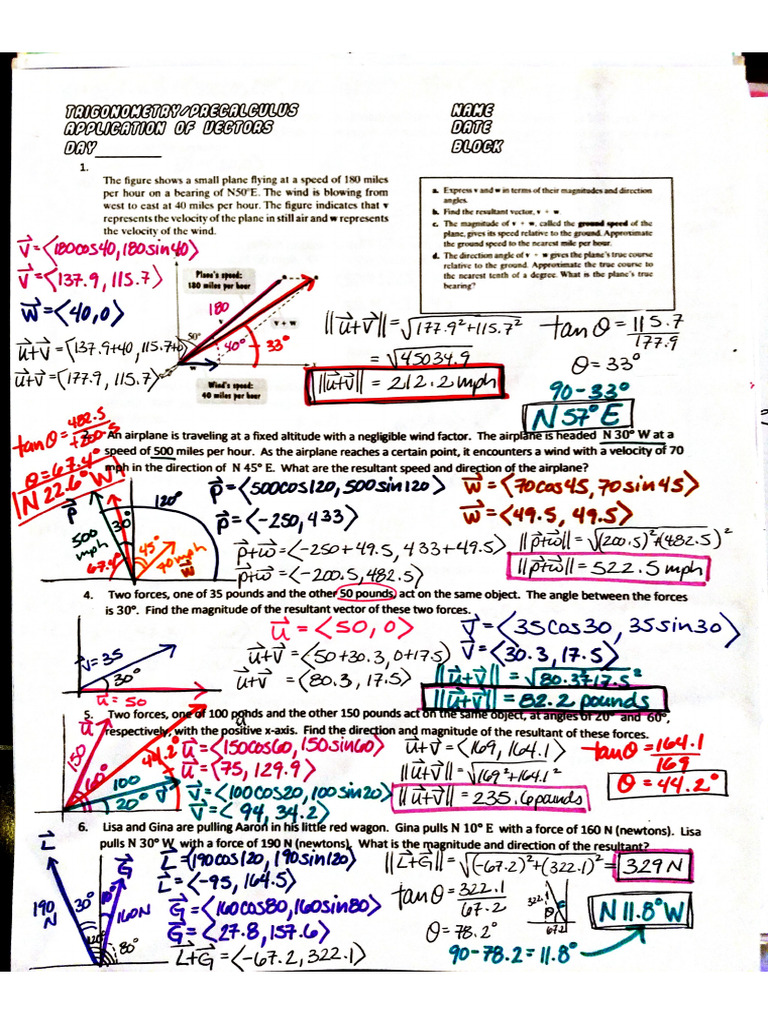 TRIGONOMETRY/PRECALCULUS
APPLICATION OF VECTORS
DAY______
NAME
DATE
BLOCK
1.
The figure shows a small plane flying at a speed of 180 miles
per hour on a bearing of N50°E. The wind is blowing from
west to east at 40 miles per hour. The figure indicates that v
represents the velocity of the plane in still air and w represents
the velocity of the wind.
a. Express v and w in terms of their magnitudes and direction
angles.
b. Find the resultant vector, v + w.
c. The magnitude of v + w, called the ground speed of the
plane, gives its speed relative to the ground. Approximate
the ground speed to the nearest mile per hour.
d. The direction angle of v + w gives the plane's true course
relative to the ground. Approximate the true course to
the nearest tenth of a degree. What is the plane's true
bearing?
v⃗ = <180cos40, 180sin40>
v⃗ = <137.9, 115.7>
w⃗ = <40, 0>
u⃗+v⃗ = <137.9+40, 115.7+0>
u⃗+v⃗ = <177.9, 115.7>
Plane's speed:
180 miles per hour
180
50°
v
v + w
40°
33°
w
Wind's speed:
40 miles per hour
||u⃗+v⃗|| = √177.9²+115.7²
= √45034.9
||u⃗+v⃗|| = 212.2 mph
tan θ = 115.7/177.9
θ = 33°
90-33°
N 57° E
tan θ = 482.5/+200.5
θ = 67.4°
N 22.6° W
An airplane is traveling at a fixed altitude with a negligible wind factor. The airplane is headed N 30° W at a
speed of 500 miles per hour. As the airplane reaches a certain point, it encounters a wind with a velocity of 70
mph in the direction of N 45° E. What are the resultant speed and direction of the airplane?
p⃗
120°
30°
500 mph
45°
70 mph
w⃗
67.4°
p⃗ = <500cos120, 500sin120>
p⃗ = <-250, 433>
p⃗+w⃗ = <-250+49.5, 433+49.5>
p⃗+w⃗ = <-200.5, 482.5>
w⃗ = <70cos45, 70sin45>
w⃗ = <49.5, 49.5>
||p⃗+w⃗|| = √(200.5)²+(482.5)²
||p⃗+w⃗|| = 522.5 mph
4. Two forces, one of 35 pounds and the other 50 pounds, act on the same object. The angle between the forces
is 30°. Find the magnitude of the resultant vector of these two forces.
v=35
30°
u = 50
u⃗ = <50, 0>
u⃗+v⃗ = <50+30.3, 0+17.5>
u⃗+v⃗ = <80.3, 17.5>
v⃗ = <35cos30, 35sin30>
v⃗ = <30.3, 17.5>
||u⃗+v⃗|| = √80.3²+17.5²
||u⃗+v⃗|| = 82.2 pounds
5. Two forces, one of 100 pounds and the other 150 pounds act on the same object, at angles of 20° and 60°,
respectively, with the positive x-axis. Find the direction and magnitude of the resultant of these forces.
u⃗
150
60°
44.2°
100
20°
v⃗
u⃗ = <150cos60, 150sin60>
u⃗ = <75, 129.9>
v⃗ = <100cos20, 100sin20>
v⃗ = <94, 34.2>
u⃗+v⃗ = <169, 164.1>
||u⃗+v⃗|| = √169²+164.1²
||u⃗+v⃗|| = 235.6 pounds
tan θ = 164.1/169
θ = 44.2°
6. Lisa and Gina are pulling Aaron in his little red wagon. Gina pulls N 10° E with a force of 160 N (newtons). Lisa
pulls N 30° W with a force of 190 N (newtons). What is the magnitude and direction of the resultant?
L⃗
G⃗
190 N
30°
10°
160N
120°
80°
L⃗ = <190cos120, 190sin120>
L⃗ = <-95, 164.5>
G⃗ = <160cos80, 160sin80>
G⃗ = <27.8, 157.6>
L⃗+G⃗ = <-67.2, 322.1>
||L⃗+G⃗|| = √(-67.2)²+(322.1)² = 329 N
tan θ = 322.1/67.2
θ = 78.2°
90-78.2 = 11.8°
322.1
θ
67.2
N 11.8° W